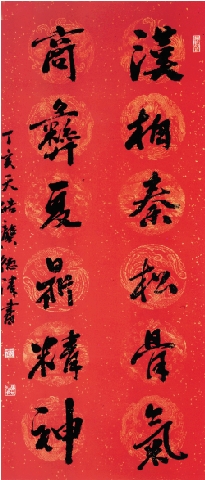 漢柏秦松骨氣
商彝夏鼎精神
丁亥天
書